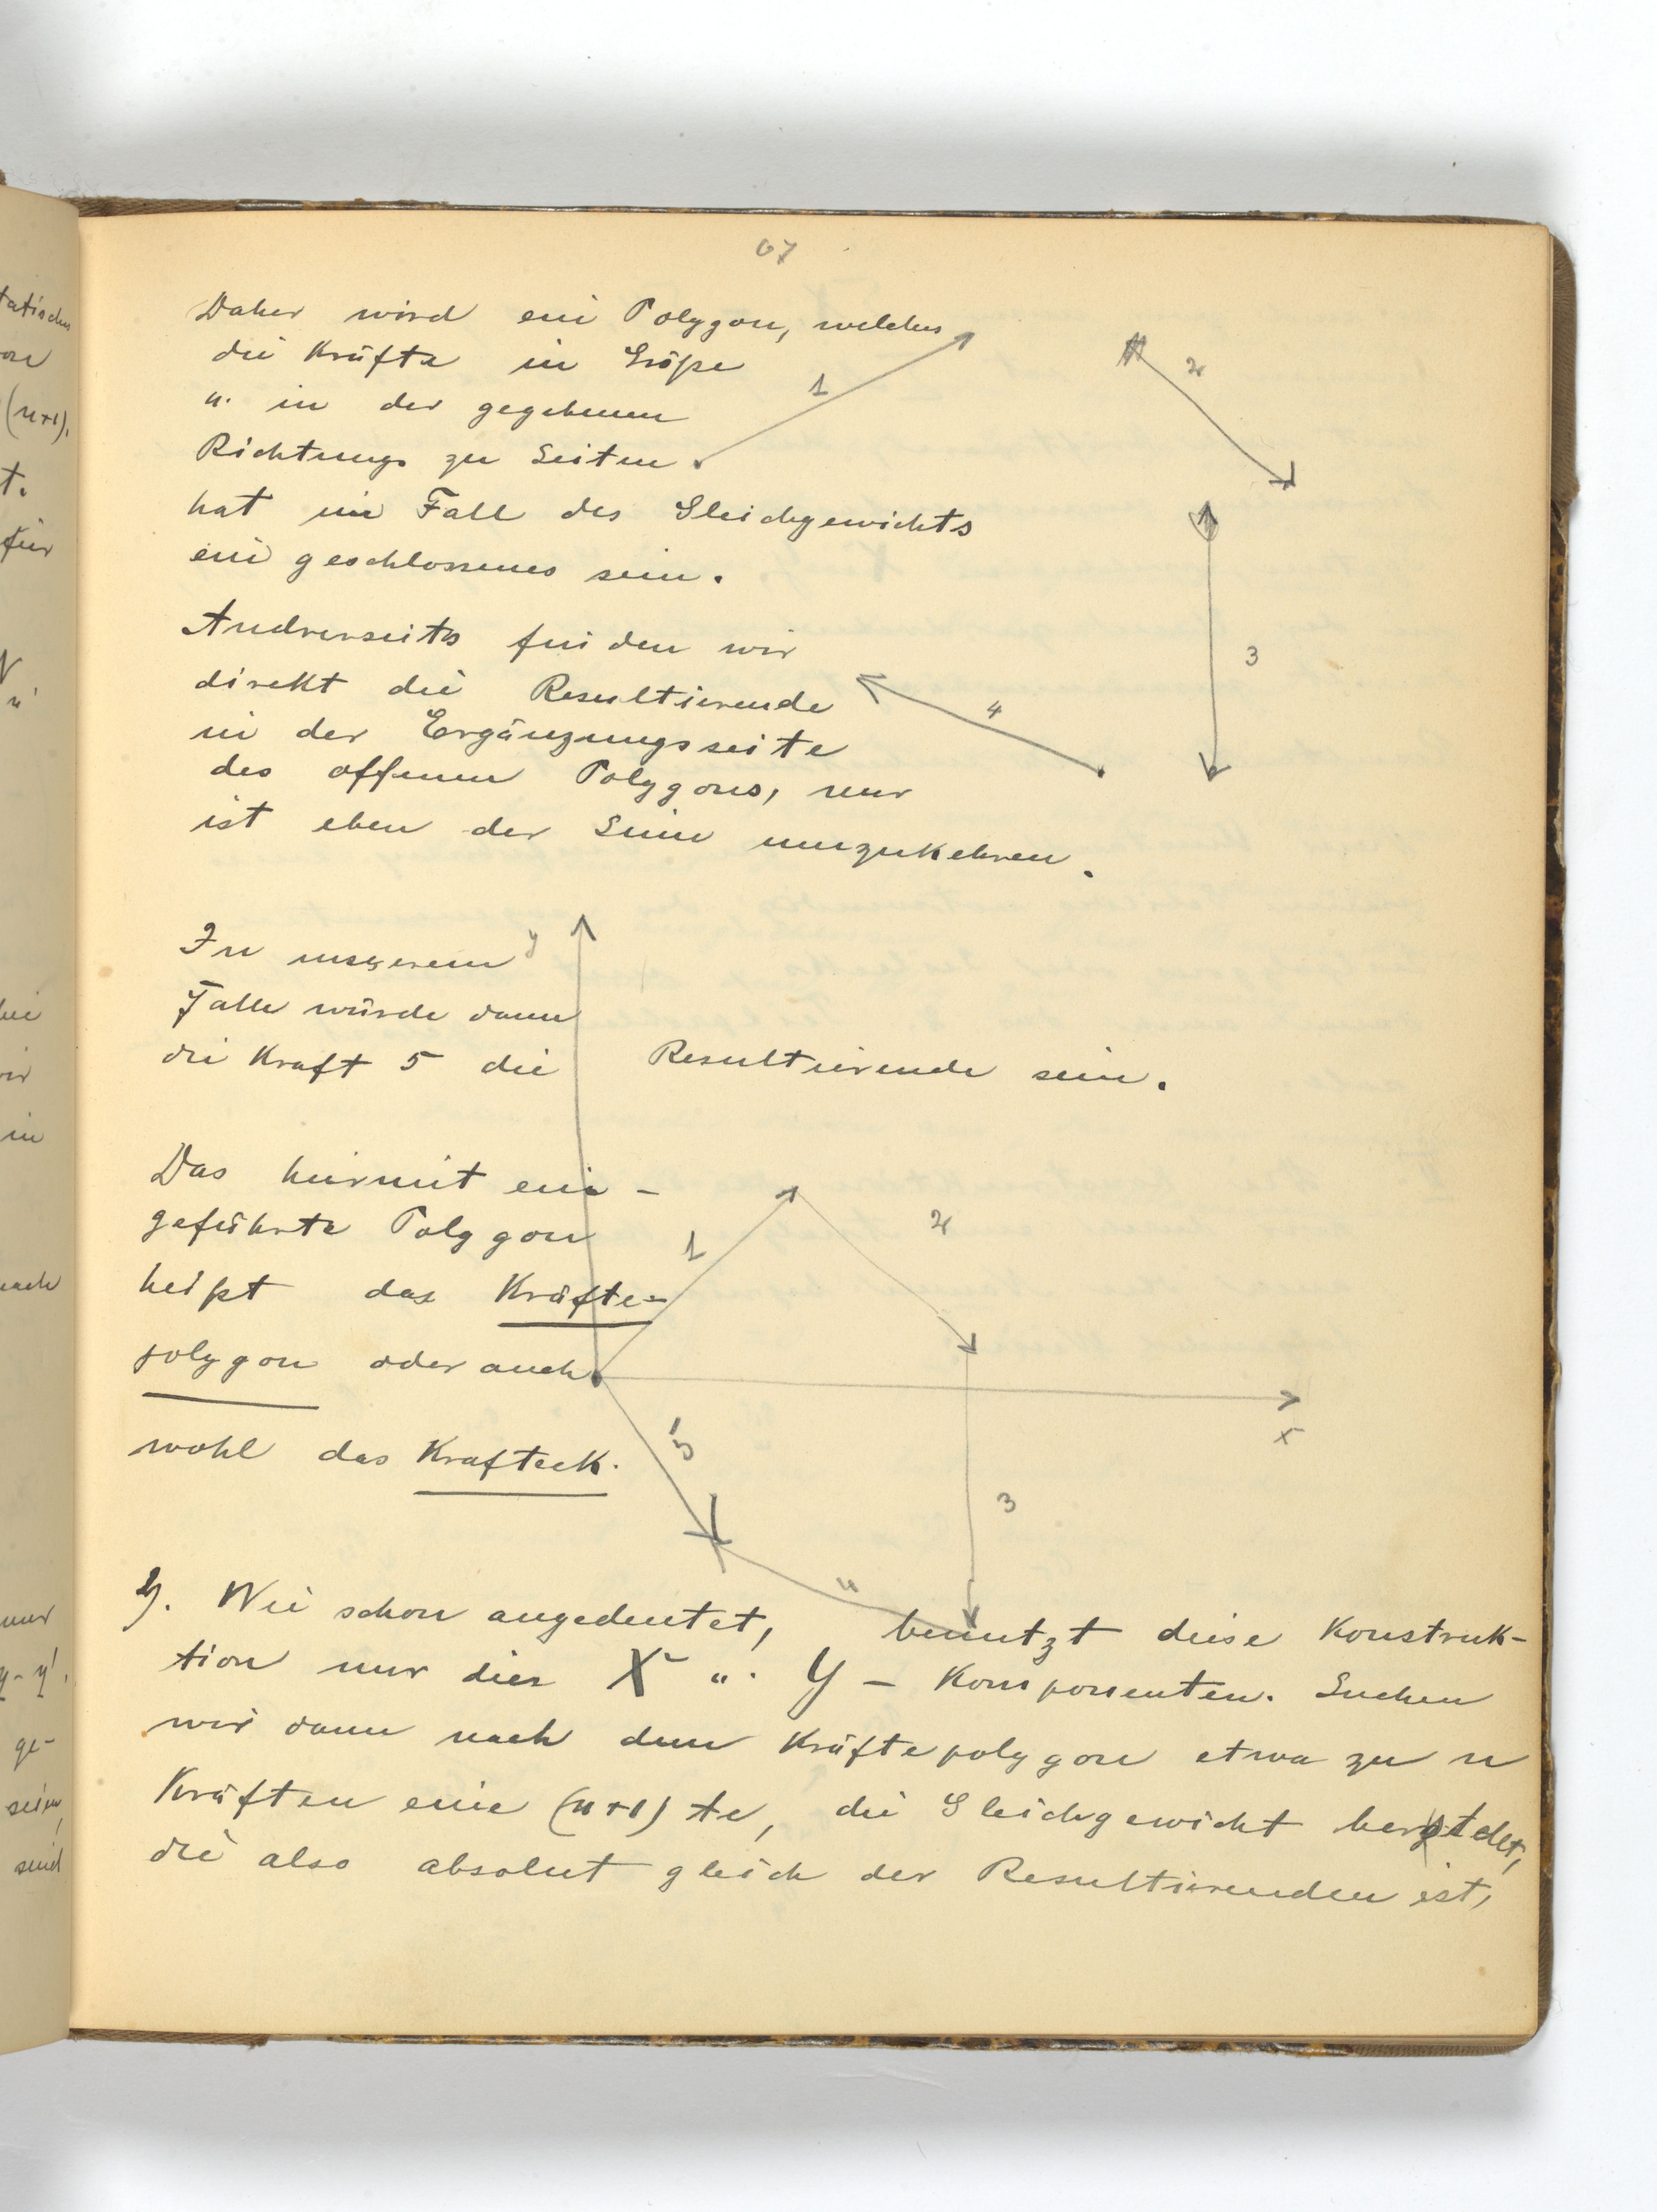 67
Daher wird ein Polygon, welches
die Kräfte in Größe
u. in der gegebenen
Richtung zu Seiten
hat im Fall des Gleichgewichts
ein geschlossenes sein.
Andrerseits finden wir
direkt die Resultierende
in der Ergänzungsseite
des offenen Polygons, nur
ist eben der Sinn umzukehren.
1
2
3
4
In unserem
Falle würde dann
die Kraft 5 die Resultierende sein.
Das hiermit ein-
geführte Polygon
heißt das Kräfte-
polygon oder auch
wohl das Krafteck.
y
1
2
x
5
3
4
2). Wie schon angedeutet, benutzt diese Konstruk-
tion nur die X u. Y - Komponenten. Suchen
wir dann nach dem Kräftepolygon etwa zu n
Kräften eine (n+1) te, die Gleichgewicht
die also absolut gleich der Resultierenden ist,
tatischen
(n+1).
t.
für
in
nur
y-y'.
ge-
sein,
sind